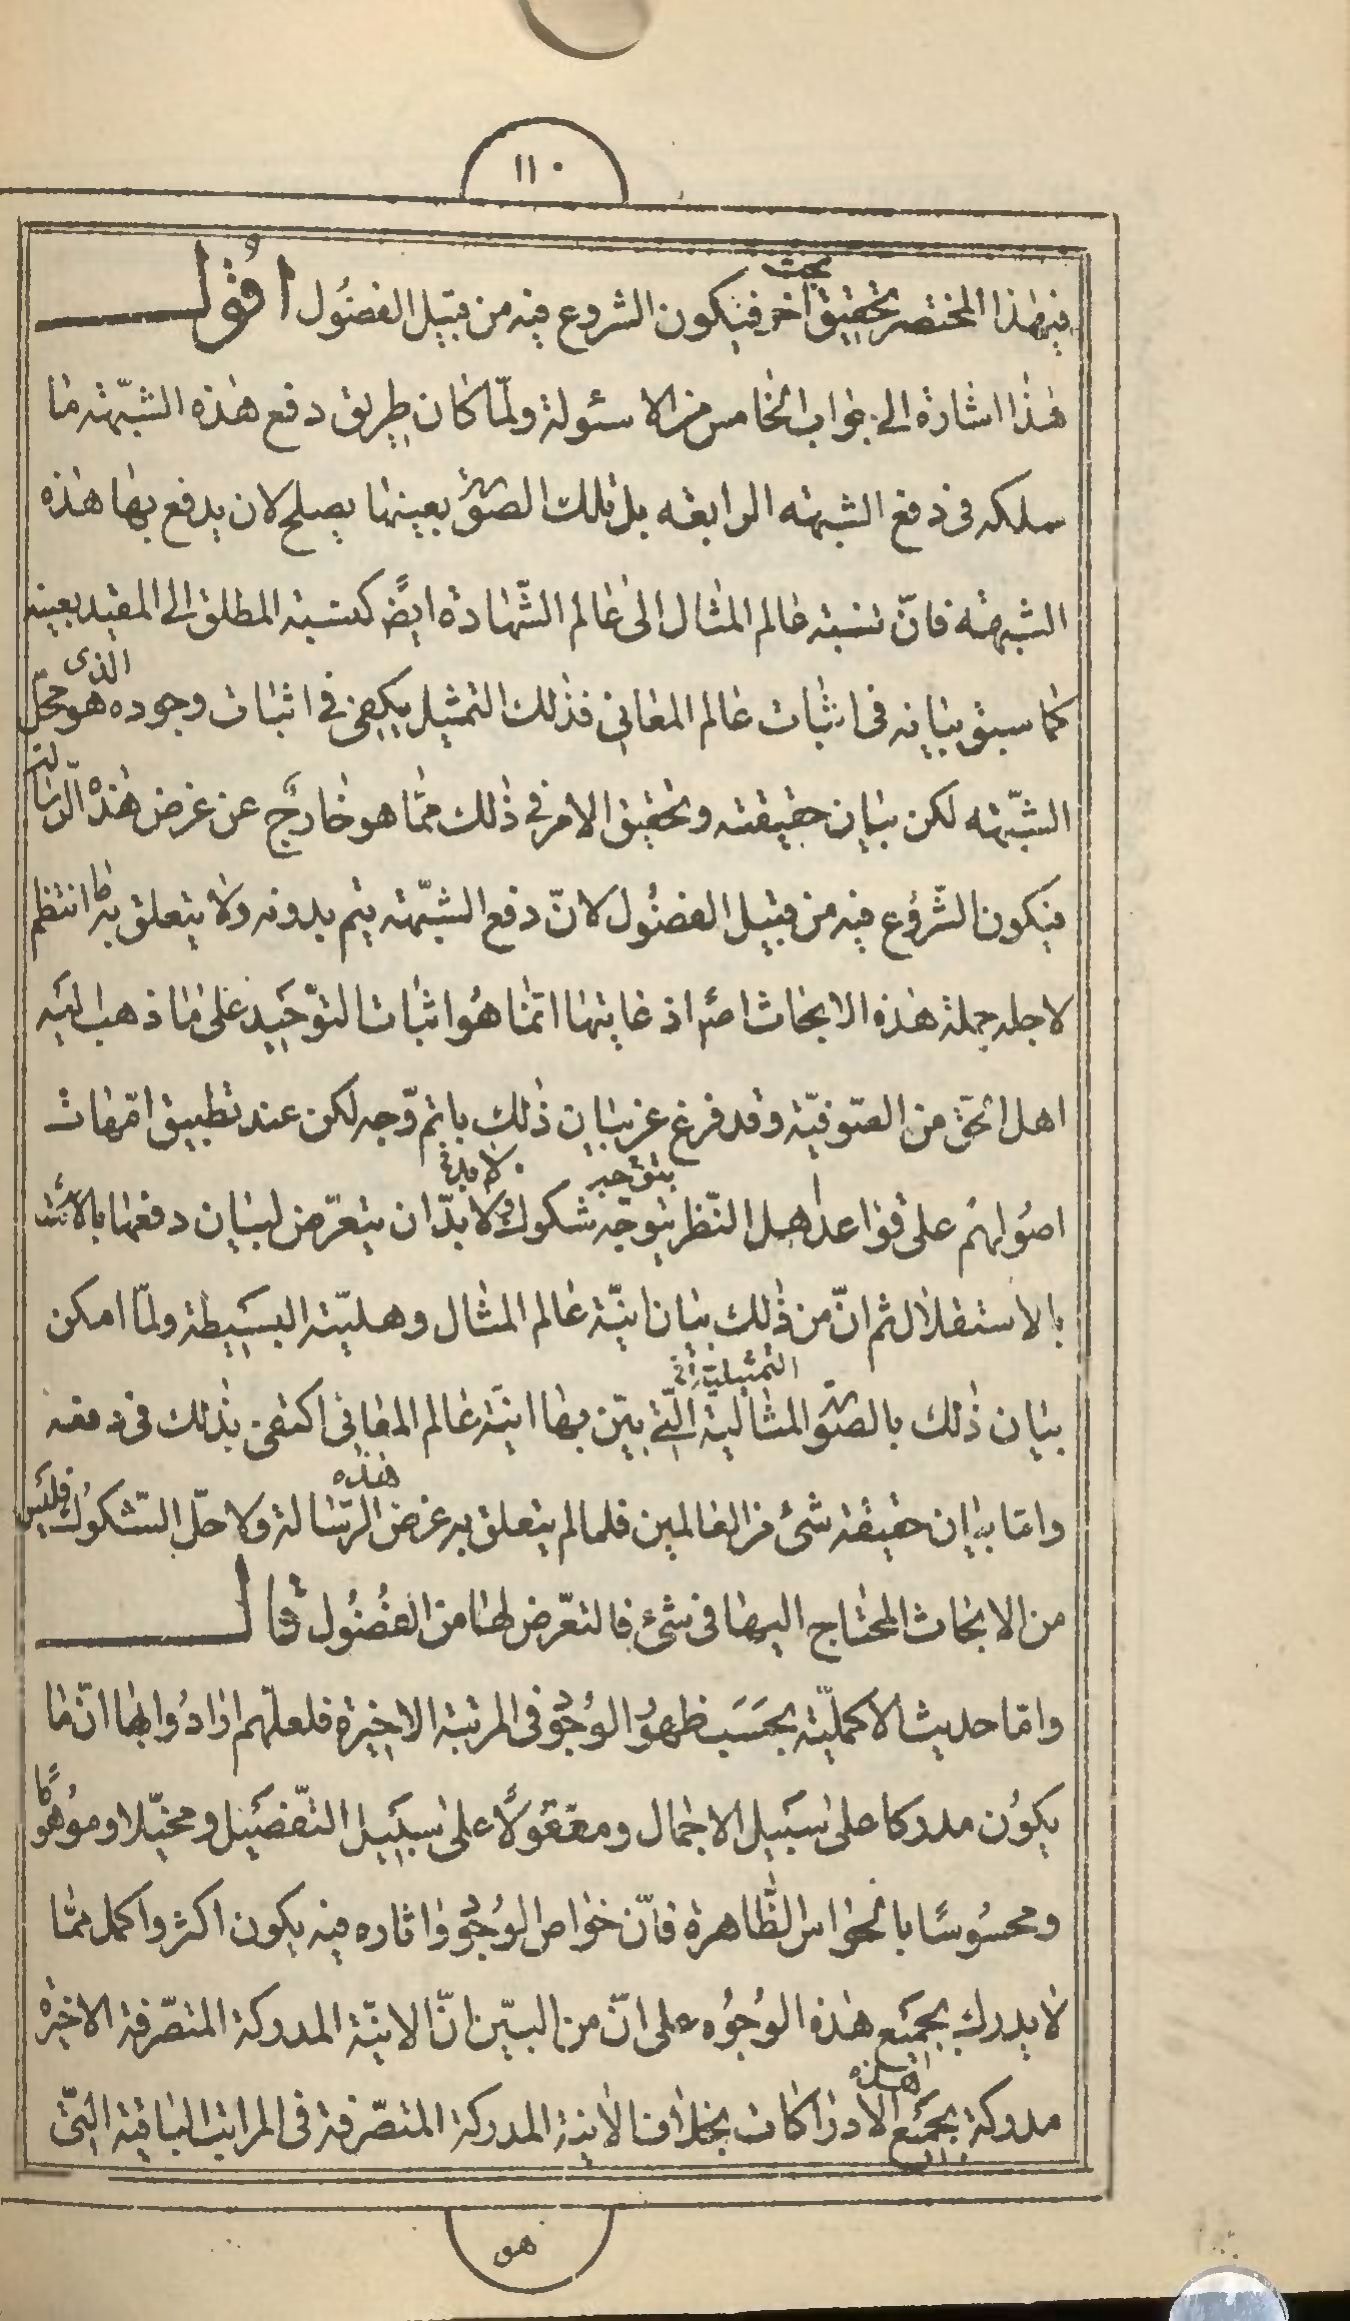 ١١٠
فی هذا المختصر تحقیق آخر فیکون الشروع فیه من قبیل الفضول اقول
هذا اشارة الی جواب الخامس من الاسئولة ولمّا کان طریق دفع هذه الشبّهة ما
سلکه فی دفع الشبهة الرابعة بل تلک الصّورة بعینها یصلح لان یدفع بها هذه
الشبهة فانّ نسبة عالم المثال الی عالم الشّهادة ایضً کنسبة المطلق الی المقید بعینه
کما سبق بیانه فی اثبات عالم المعانی فذلک التمثیل یکفی فی اثبات وجوده الذی هو محلّ
الشبّهة لکن بیان حقیقته وتحقیق الامر فی ذلک ممّا هو خارج عن غرض هذه الرّسالة
فیکون الشّروع فیه من قبیل الفضُول لانّ دفع الشبّهة یتم بدونه ولا یتعلق به ما انتظم
لاجله جملة هذه الابحاث اصلا اذ غایتها انّما هُو اثبات التوّحید علی ما ذهب الیه
اهل الحقّ من الصّوفیّة وقد فرغ عن بیان ذلک باتم وّجه لکن عند تطبیق امّهات
اصُولهُم علی قواعد اهل النّظر یتوجّه شکوک ولا بدّان یتعرّض لبیان دفعها
بالاستقلال ثم انّ من ذلک بیان انیّة عالم المثال وهلیّته البسَیطة ولمّا امکن
بیان ذلک بالصّورة المثالیة التّی بیّن بها انیّة عالم المعانی اکتفی بذلک فی دفعه
هذه
وامّا بیان حقیقة شیٔ من العالمین فلما لم یتعلق به غرض الرّسالة ولا حلّ الشّکوُک فلیس
من الابحاث المحتاج الیها فی شیٔ فالتعرّض لها من الفضُول قال
وامّا حدیث الاکملیّة بحسَب ظهوُر الوُجوُد فی المرتبة الاخیرة فلعلّهم ارادُوا بها انّ ما
یکوُن مدرکا علی سبَیل الاجمال ومعقولًا علی سبَیل التّفصَیل ومخیّلا وموُهوماً
ومحسُوسًا بالحواس الظّاهرة فانّ خواص الوُجوُد واثاره فیه یکون اکثر واکمل ممّا
لا یدرک بجمَیع هذه الوُجُوه علی انّ من البیّن انّ الانیّة المدرکة المتصّرفة الاخیرة
مدرکة بجمَیع الادراکات بخلاف الانیة المدرکة المتصّرفة فی المراتب الباقیة التّی
هو